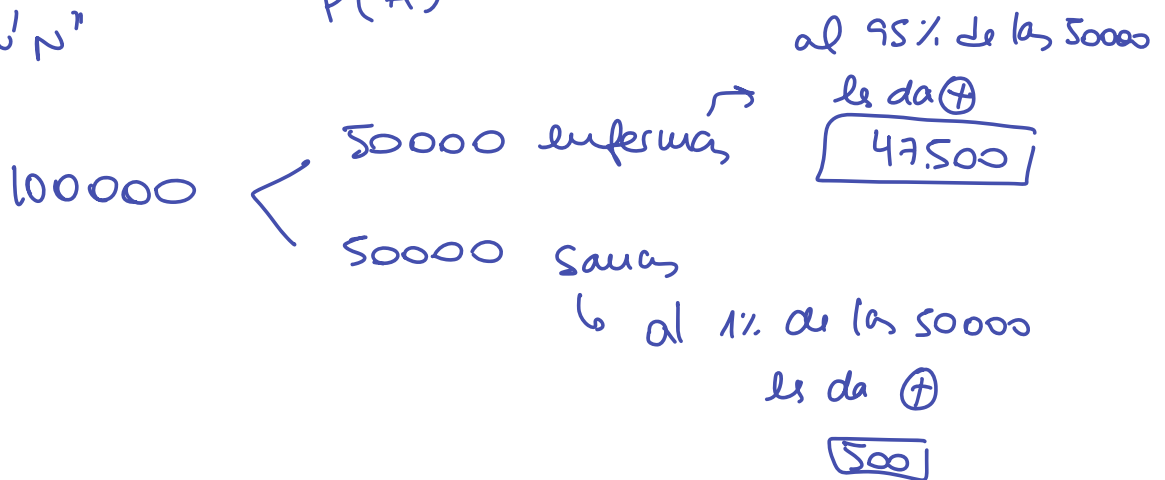 N"
P(A)
al 95% de las 50000
les da ⊕
47.500
50000 enfermas
100000
50000 sanas
al 1% de las 50000
les da ⊕
500